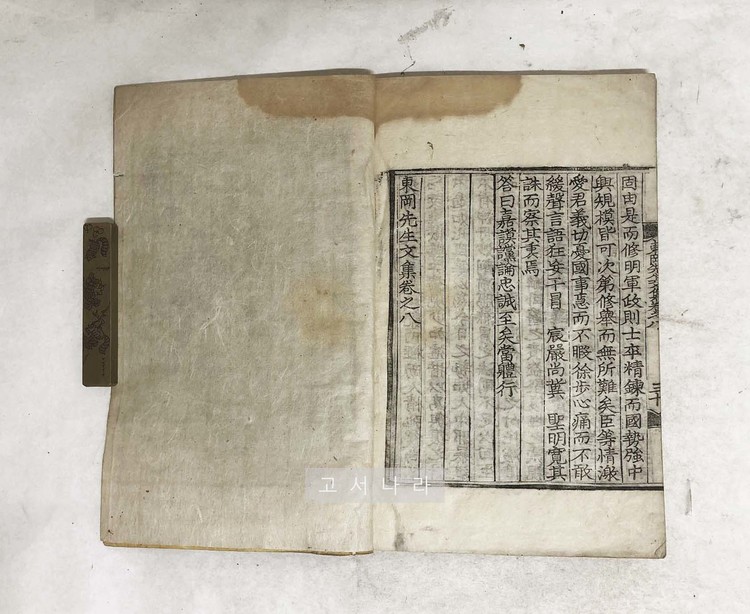 固由是而修明軍政則士卒精鍊而國勢強中
興規模皆可次第修擧而無所難矣臣等情深
愛君義切憂國事急而不暇徐步心痛而不敢
緩聲言語狂妄干冒 宸嚴尚冀 聖明寬其
誅而察其衷焉
答曰嘉謨讜論忠誠至矣當軆行
東岡先生文集卷之八
고서나라